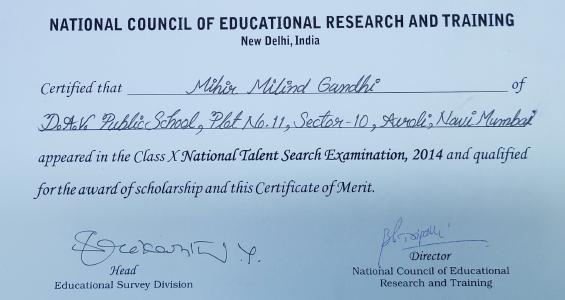 NATIONAL COUNCIL OF EDUCATIONAL RESEARCH AND TRAINING
New Delhi, India
Certified that Mihir Milind Gandhi of
D.A.V. Public School, Plot No. 11, Sector-10, Airoli, Navi Mumbai
appeared in the Class X National Talent Search Examination, 2014 and qualified
for the award of scholarship and this Certificate of Merit.
Head
Educational Survey Division
Director
National Council of Educational
Research and Training